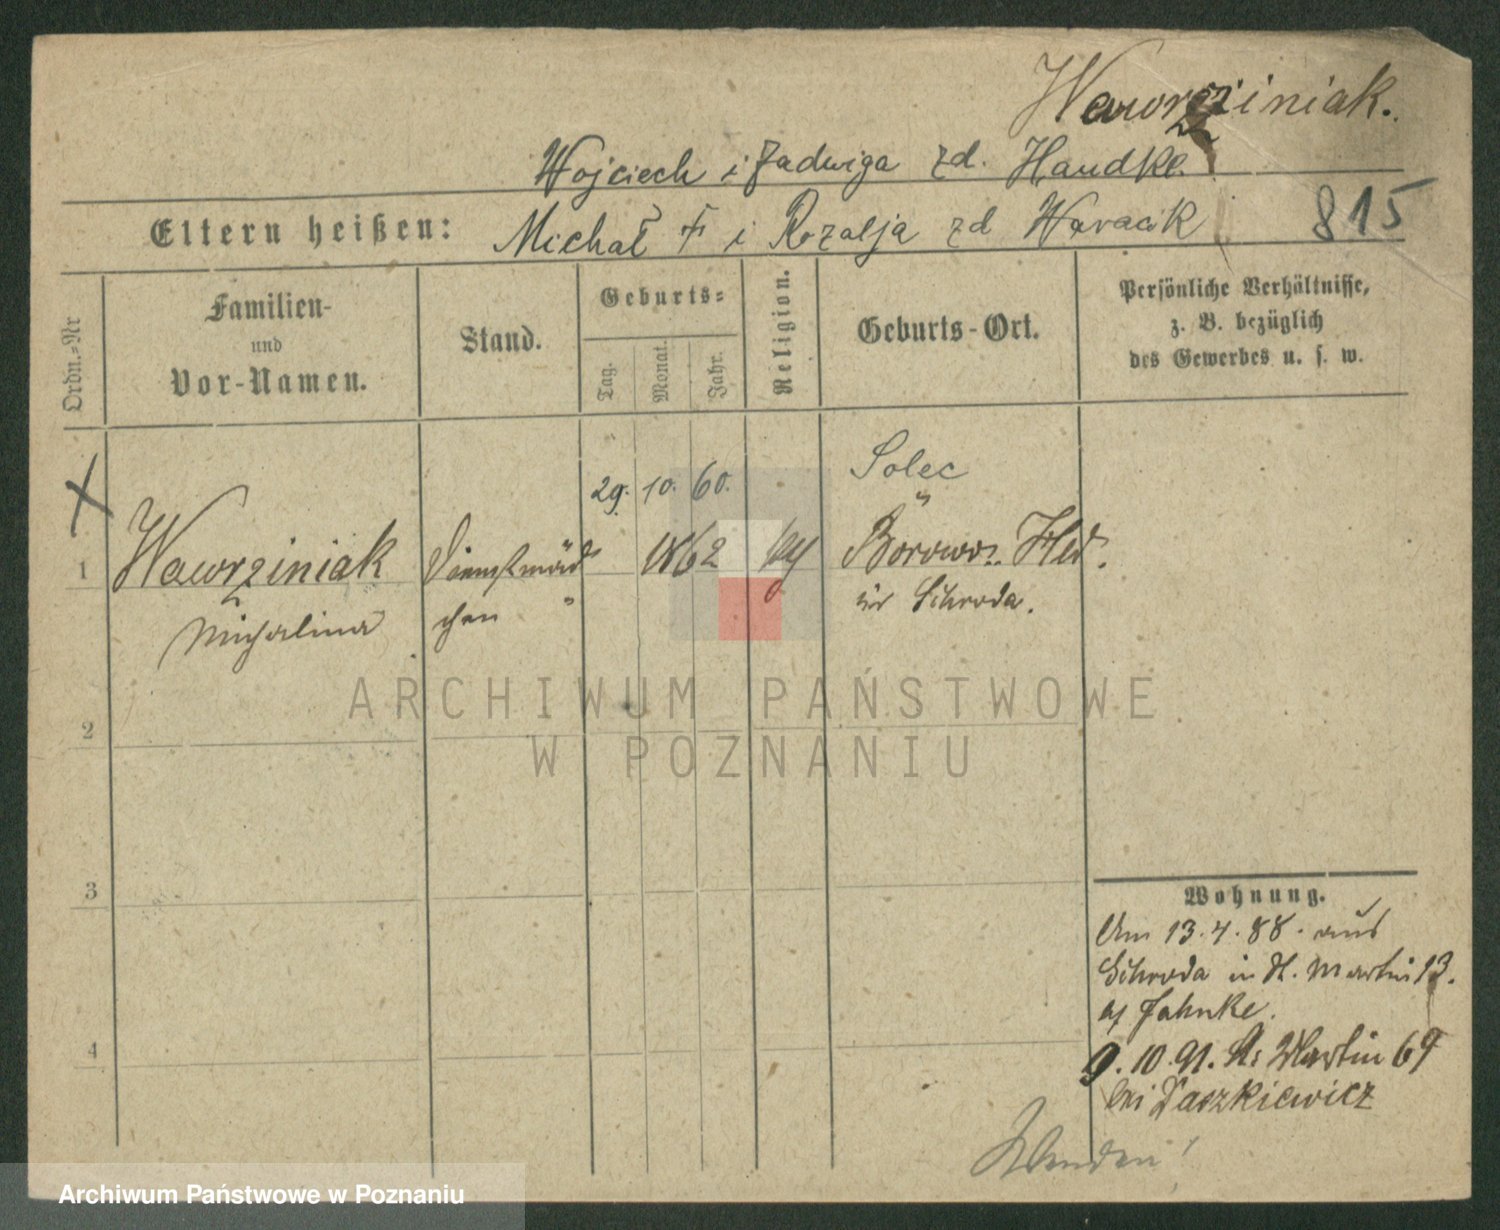 Wawrziniak.
Wojciech i Jadwiga zd. Handke.
Eltern heißen: Michał † i Rozalja zd Waracik 815
Ordn.-Nr
Familien-
und
Vor-Namen.
Stand.
Geburts-
Tag.
Monat.
Jahr.
Religion.
Geburts-Ort.
Persönliche Verhältnisse,
z. B. bezüglich
des Gewerbes u. s. w.
Solec
29. 10. 60.
1 Wawrziniak Dienstmäd 1862 Borowo
Michalina chen Schroda.
2
3
4
Wohnung.
Am 13.4.88. aus
Schroda in St. Martin 13.
Jahnke.
9.10.91. St. Martin 69
bei Daszkiewicz
Wenden!
ARCHIWUM PAŃSTWOWE
W POZNANIU
Archiwum Państwowe w Poznaniu